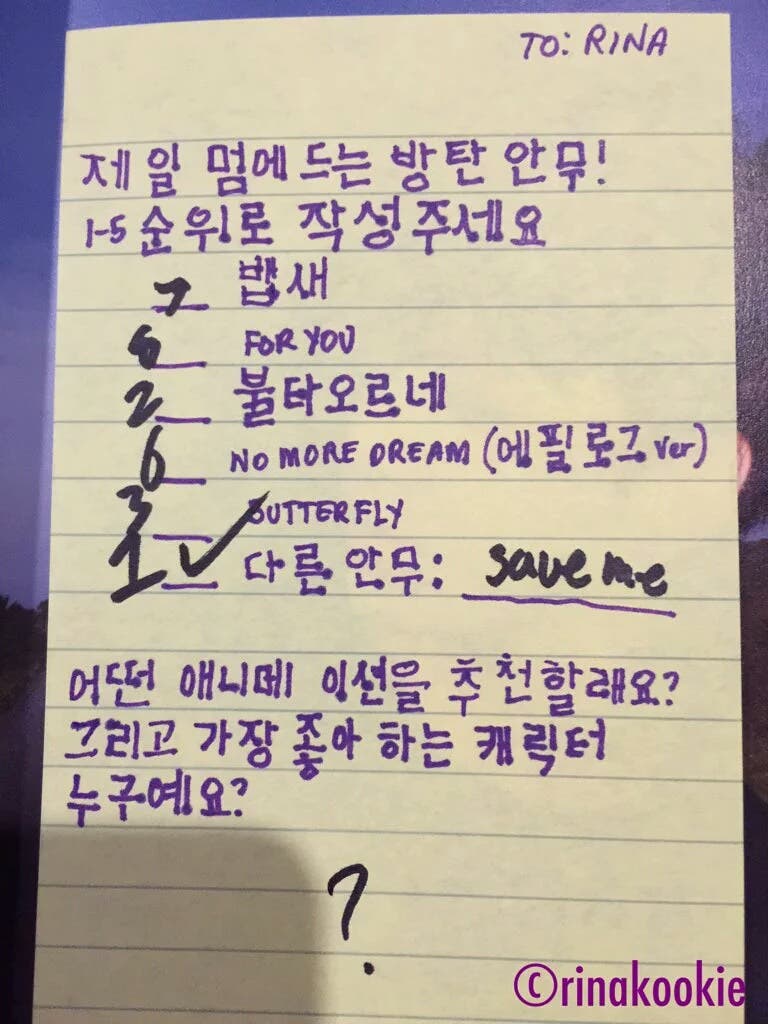 TO: RINA
제일 멈에 드는 방탄 안무!
1-5 순위로 작성주세요
7 뱁새
FOR YOU
2 불타오르네
6 NO MORE DREAM (에필로그 ver)
3 BUTTERFLY
1 ✓ 다른 안무: save me
어떤 애니메이션을 추천할래요?
그리고 가장 좋아 하는 캐릭터
누구예요?
?
©rinakookie